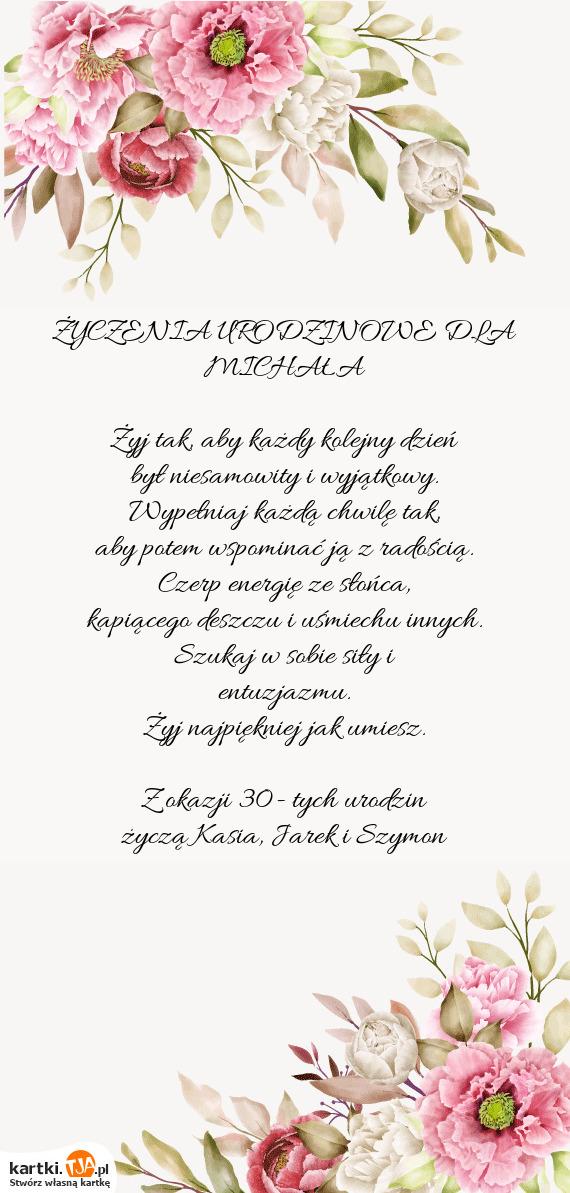 ŻYCZENIA URODZINOWE DLA
MICHAŁA
Żyj tak, aby każdy kolejny dzień
był niesamowity i wyjątkowy.
Wypełniaj każdą chwilę tak,
aby potem wspominać ją z radością.
Czerp energię ze słońca,
kapiącego deszczu i uśmiechu innych.
Szukaj w sobie siły i
entuzjazmu.
Żyj najpiękniej jak umiesz.
Z okazji 30 - tych urodzin
życzą Kasia, Jarek i Szymon
kartki.TJA.pl
Stwórz własną kartkę